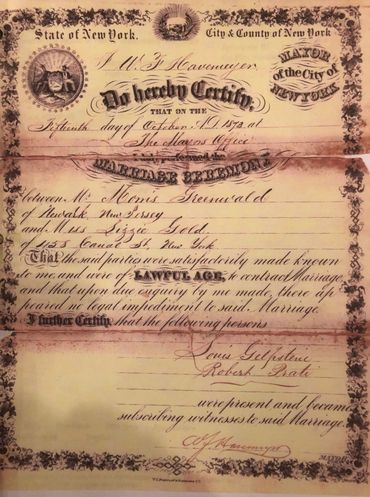 State of New York. City & County of New York
I W F Havemeyer MAYOR
of the City of
NEW YORK
Do hereby Certify,
THAT ON THE
Fifteenth day of October A.D. 1873 at
The Mayors Office
I duly performed the
MARRIAGE CEREMONY
between Mr Morris Greenwald
of Newark, New Jersey
and Miss Lizzie Gold
of Canal St, New York
That the said parties were satisfactorily made known
to me and were of LAWFUL AGE, to contract Marriage
and that upon due enquiry by me made, there ap
peared no legal impediment to said Marriage
I further Certify, that the following persons
Louis
Robert Prati
were present and became
subscribing witnesses to said Marriage.